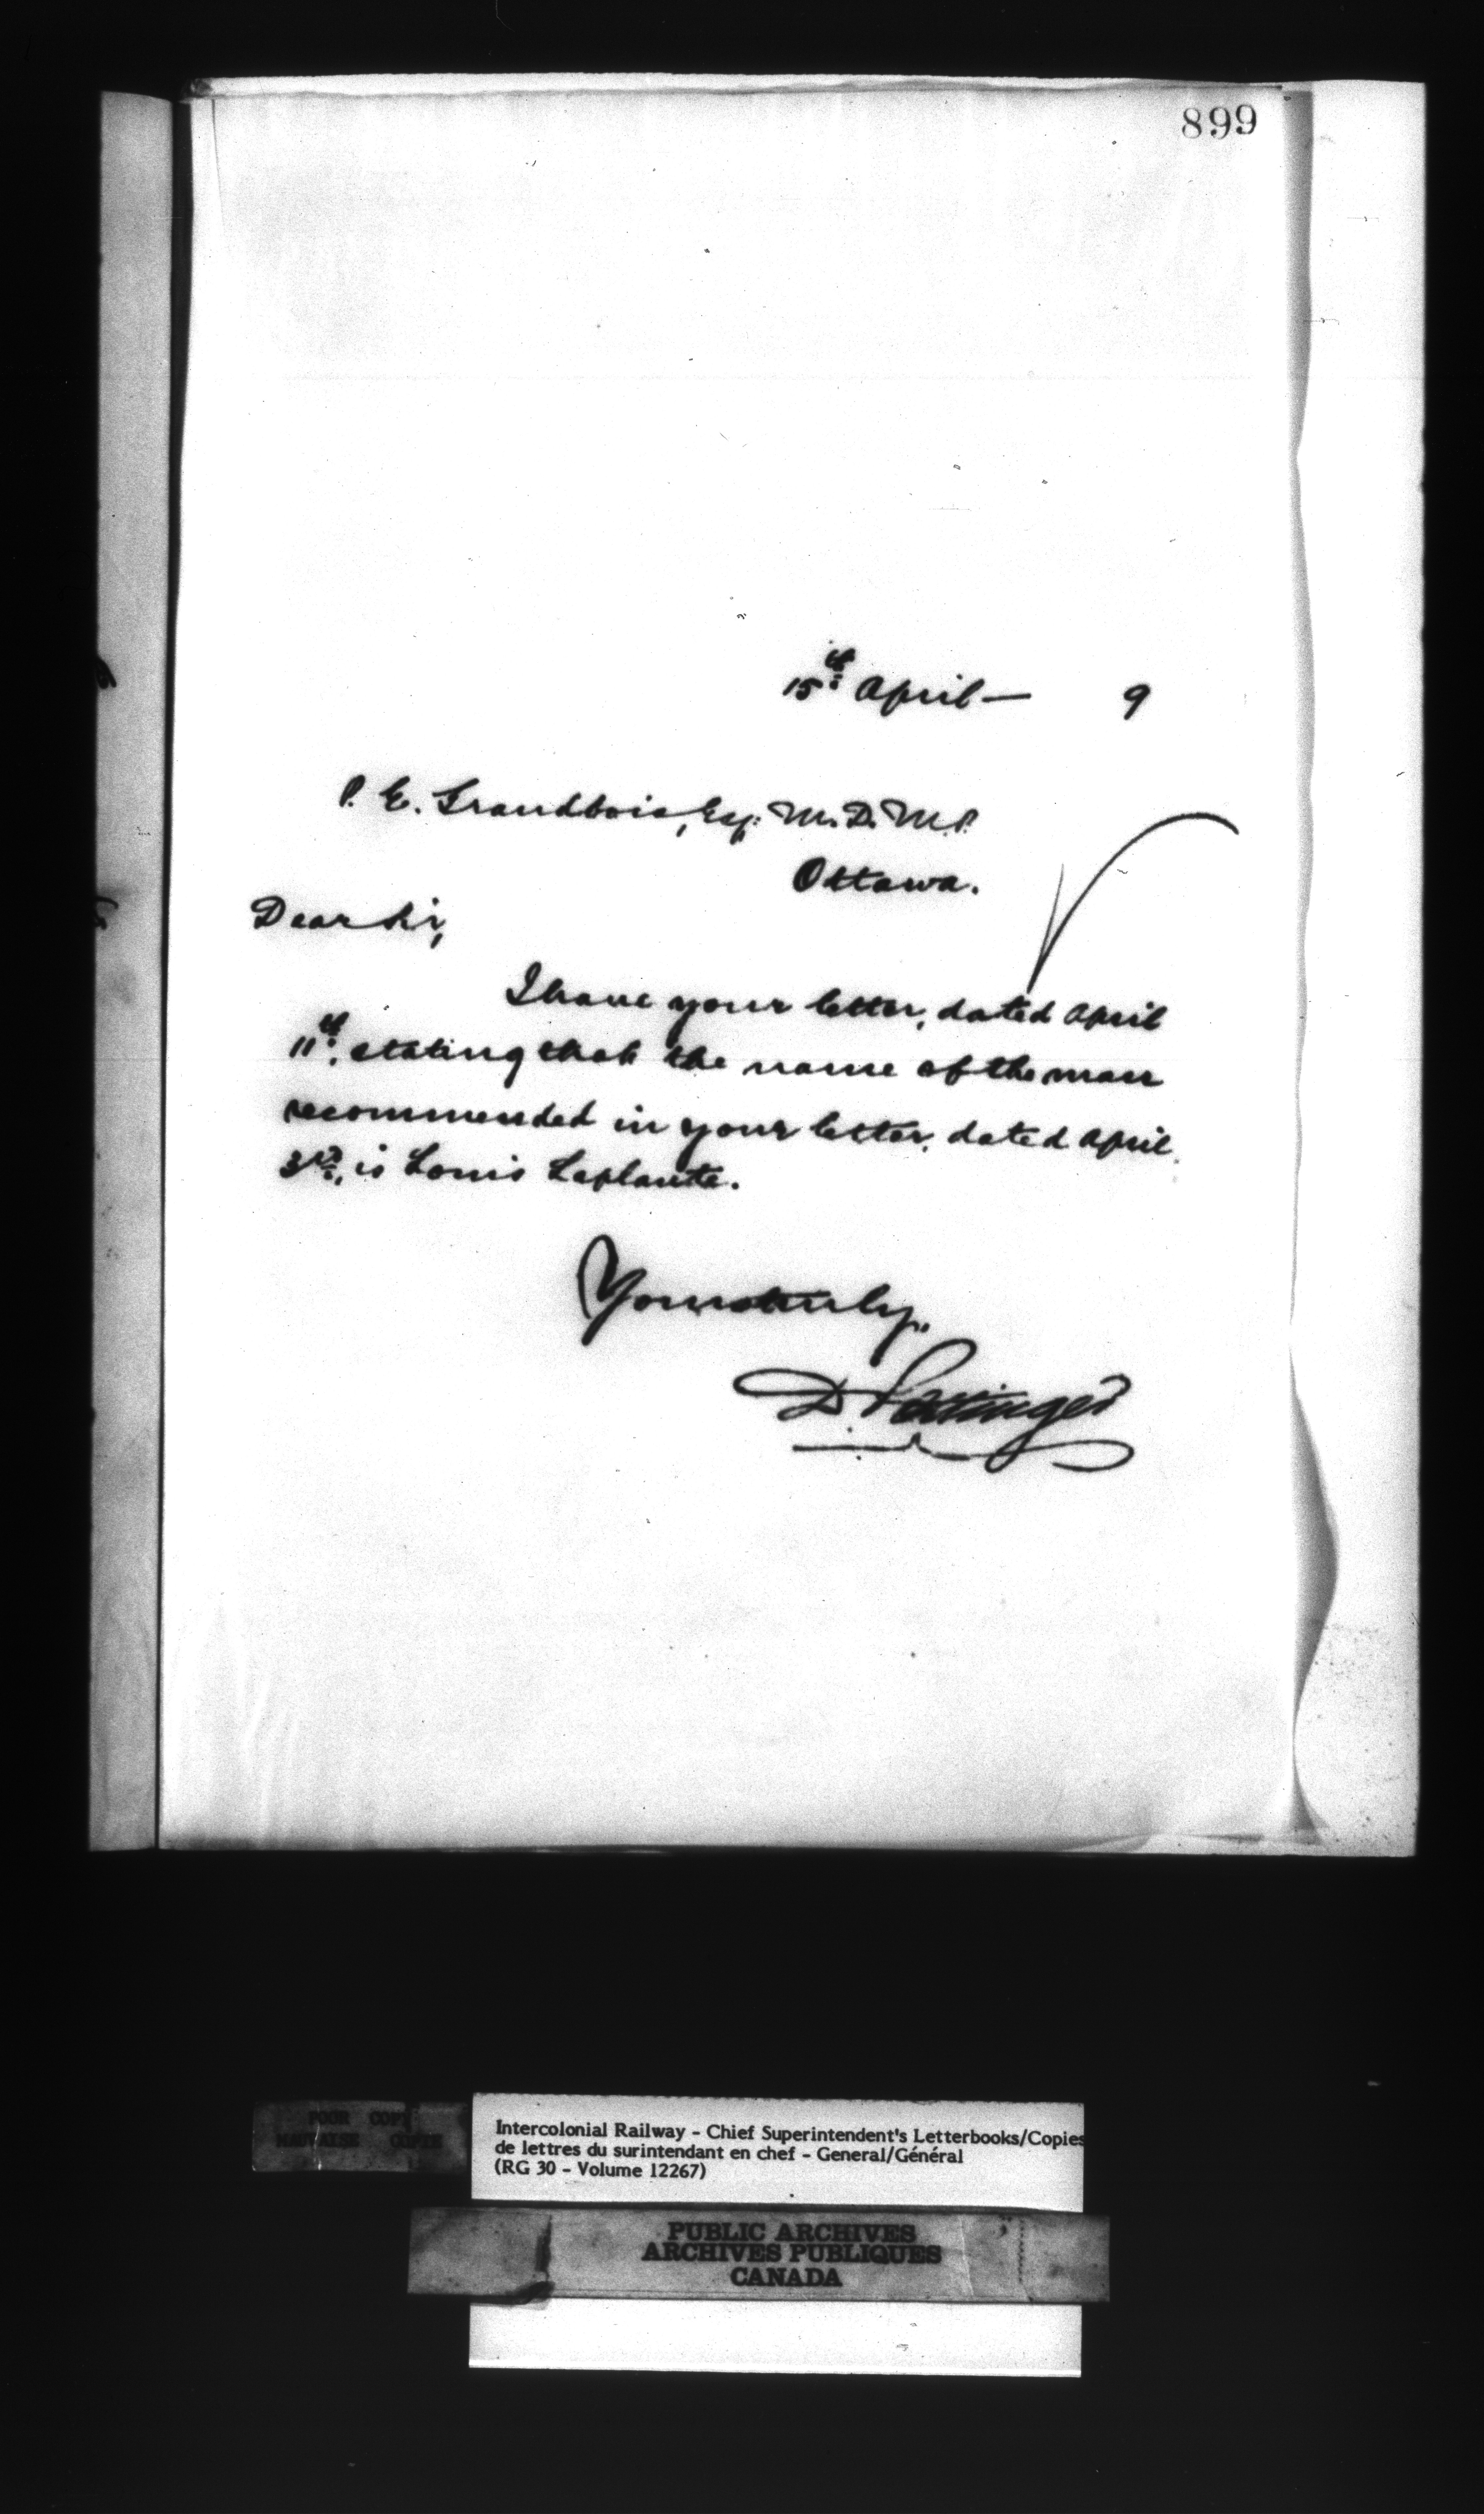 899
15th April — 9
P. E. Grandbois, Esq: M.D. M.P.
Ottawa.
Dear Sir,
I have your letter, dated April
11th, stating that the name of the man
recommended in your letter, dated April
3rd, is Louis Laplante.
Yours truly,
D. Pottinger
POOR COPY
MAUVAISE COPIE
Intercolonial Railway - Chief Superintendent's Letterbooks/Copies
de lettres du surintendant en chef - General/Général
(RG 30 - Volume 12267)
PUBLIC ARCHIVES
ARCHIVES PUBLIQUES
CANADA